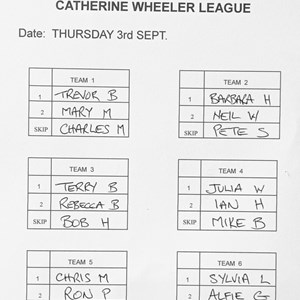 CATHERINE WHEELER LEAGUE
Date: THURSDAY 3rd SEPT.
TEAM 1
1 TREVOR B
2 MARY M
SKIP CHARLES M
TEAM 2
1 BARBARA H
2 NEIL W
SKIP PETE S
TEAM 3
1 TERRY B
2 REBECCA B
SKIP BOB H
TEAM 4
1 JULIA W
2 IAN H
SKIP MIKE B
TEAM 5
1 CHRIS M
2 RON P
TEAM 6
1 SYLVIA L
2 ALFIE G